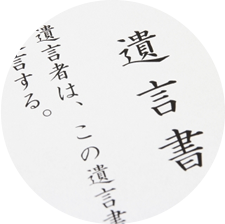 遺言書
遺言者は、この遺言書
言する。